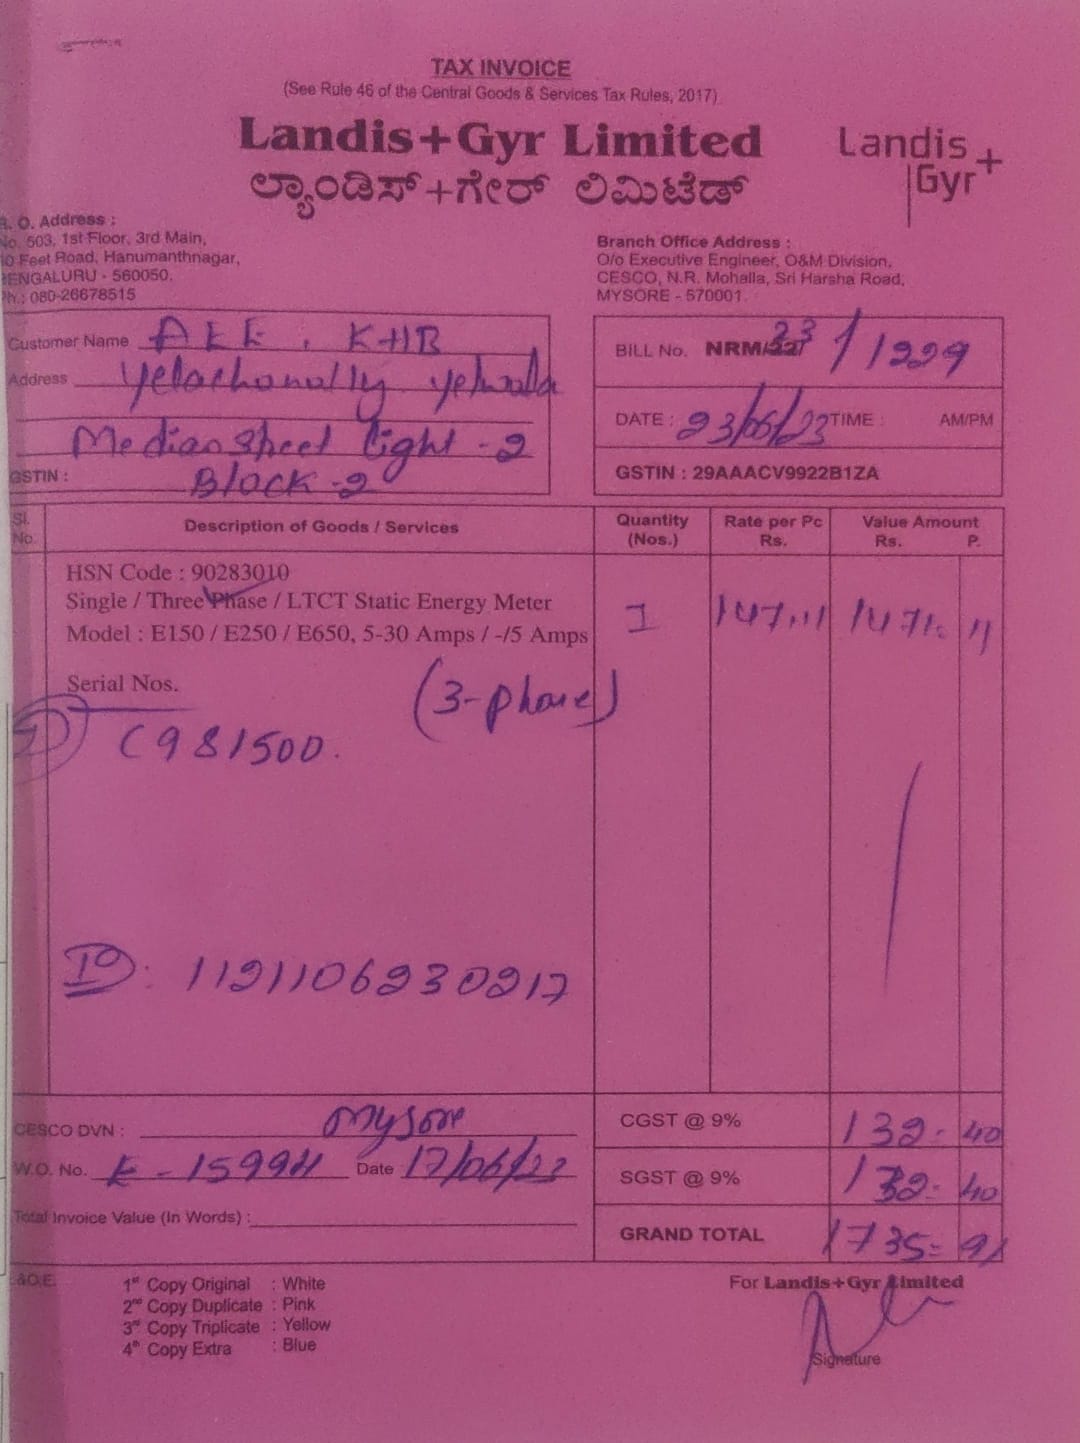 TAX INVOICE
(See Rule 46 of the Central Goods & Services Tax Rules, 2017)
Landis+Gyr Limited
ಲ್ಯಾಂಡಿಸ್+ಗೇರ್ ಲಿಮಿಟೆಡ್
Landis+
Gyr
R. O. Address :
No. 503, 1st Floor, 3rd Main,
Feet Road, Hanumanthnagar,
BENGALURU - 560050.
Ph.: 080-26678515
Branch Office Address :
O/o Executive Engineer, O&M Division,
CESCO, N.R. Mohalla, Sri Harsha Road,
MYSORE - 570001.
Customer Name AEE, KHB
Address Yelachanally yelwala
Median Street light - 2
GSTIN : Block - 2
BILL No. NRM/23/1229
DATE : 23/06/23 TIME : AM/PM
GSTIN : 29AAACV9922B1ZA
Sl. No. Description of Goods / Services Quantity (Nos.) Rate per Pc Rs. Value Amount Rs. P.
HSN Code : 90283010
Single / Three Phase / LTCT Static Energy Meter
Model : E150 / E250 / E650, 5-30 Amps / -/5 Amps
1 1471.11 1471. 11
Serial Nos.
(3-phase)
1) C981500.
ID: 1121106230217
CESCO DVN : Mysore
W.O. No. K-15994 Date 17/06/23
Total Invoice Value (In Words) :
CGST @ 9% 132- 40
SGST @ 9% 132- 40
GRAND TOTAL 1735= 91
E&O.E.
1st Copy Original : White
2nd Copy Duplicate : Pink
3rd Copy Triplicate : Yellow
4th Copy Extra : Blue
For Landis+Gyr Limited
Signature